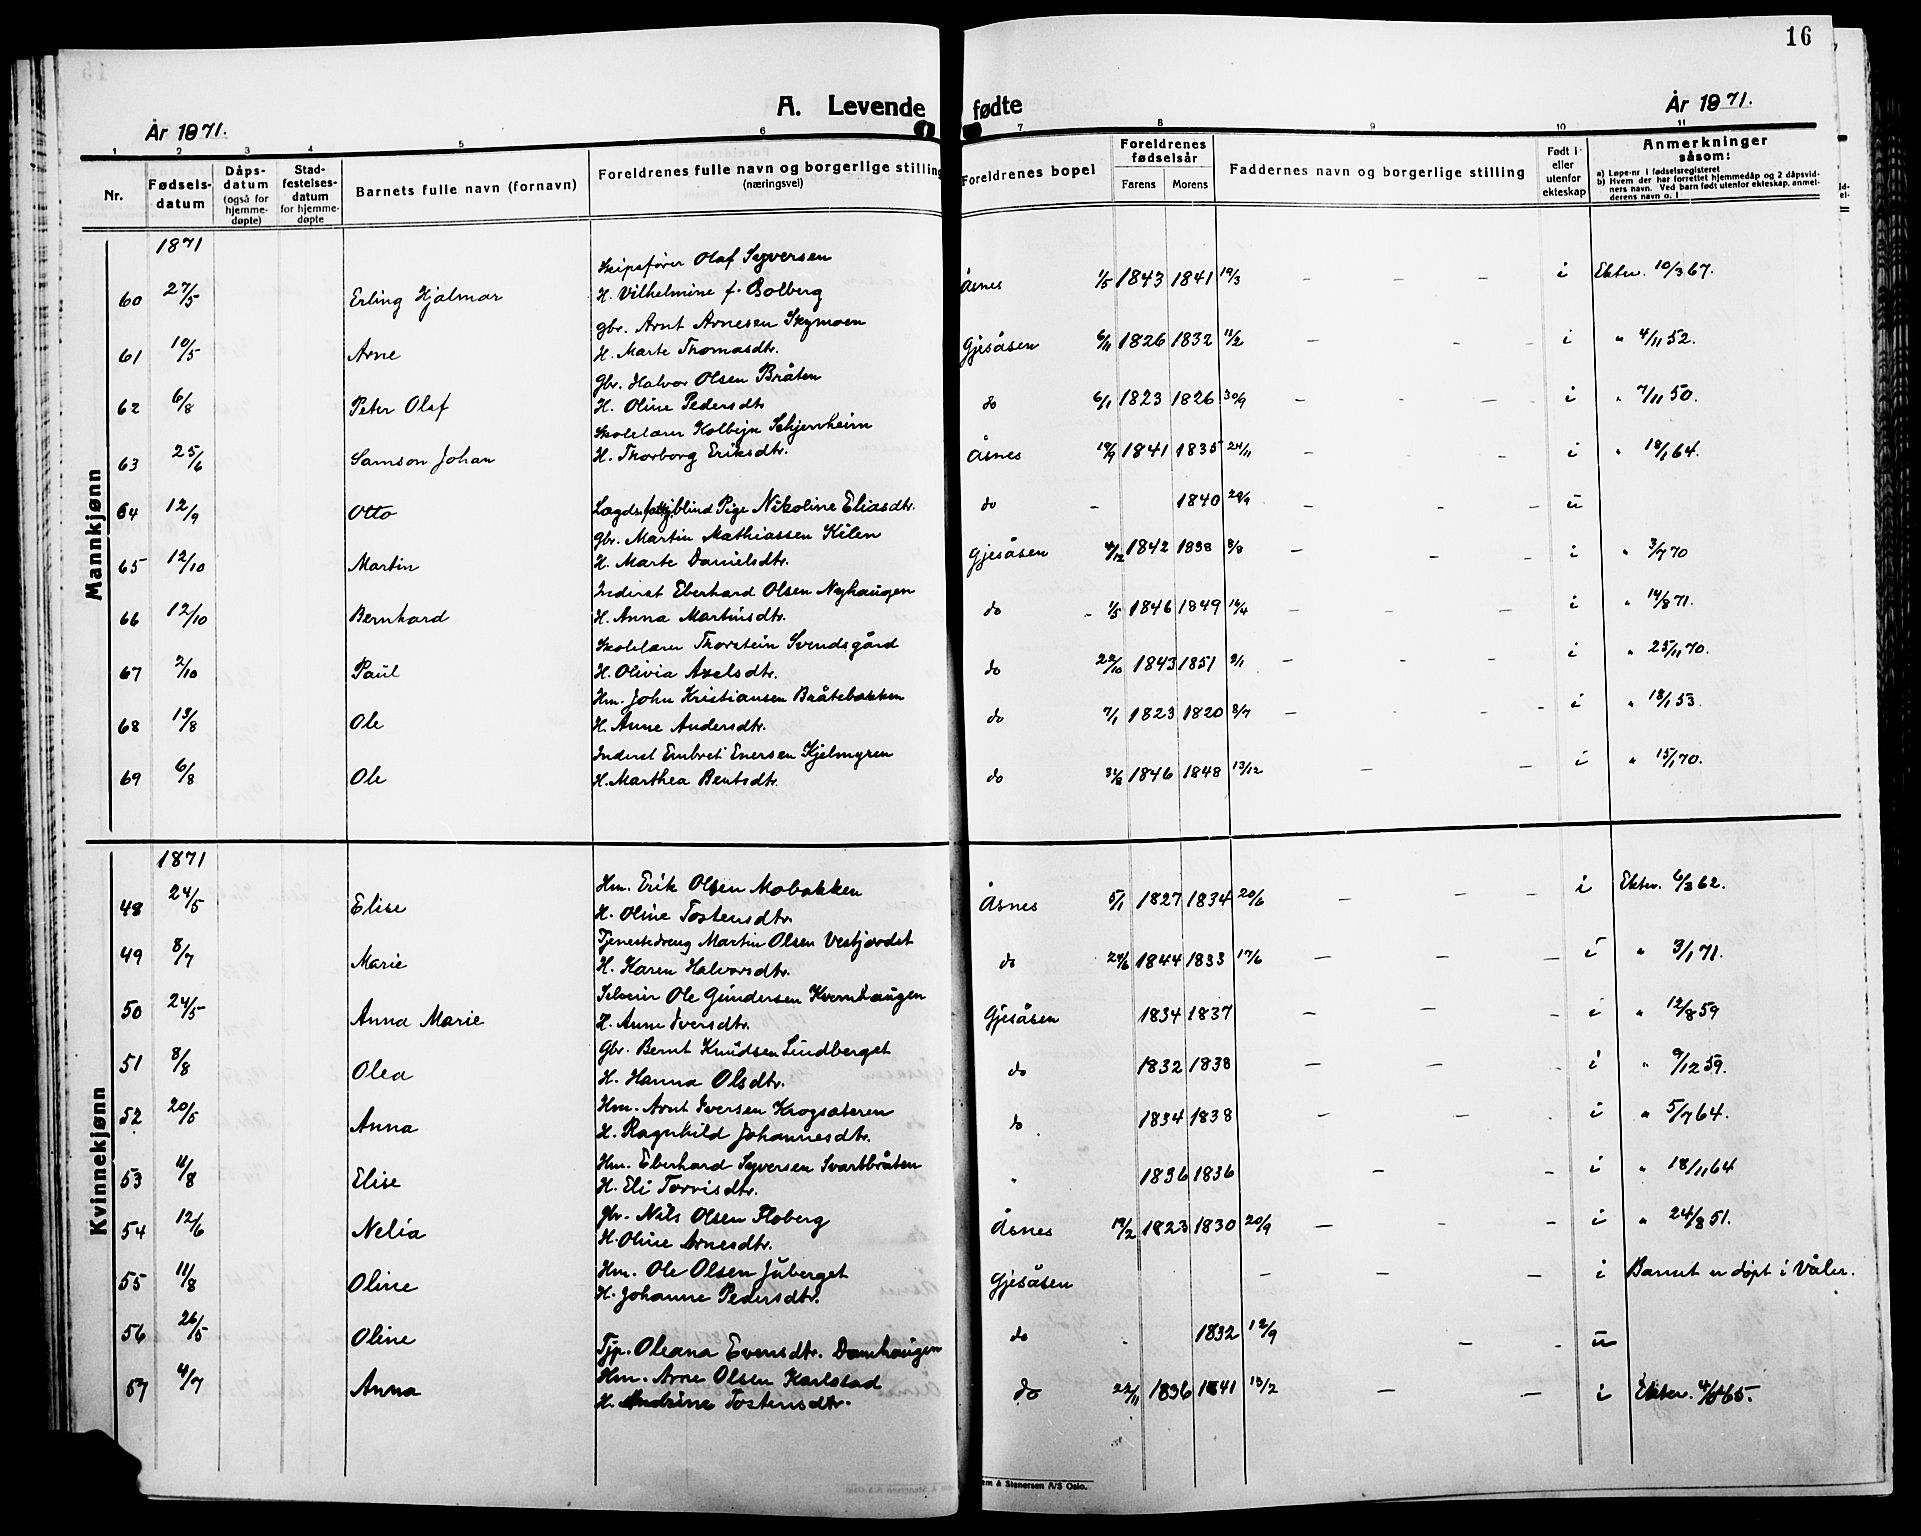 16
A. Levende fødte
År 1871.
År 1871.
1 2 3 4 5 6 7 8 9 10 11
Nr. Fødsels-datum Dåps-datum (også for hjemme-døpte) Stad-festelses-datum for hjemme-døpte Barnets fulle navn (fornavn) Foreldrenes fulle navn og borgerlige stilling (næringsvei) Foreldrenes bopel Foreldrenes fødselsår Farens Morens Faddernes navn og borgerlige stilling Født i eller utenfor ekteskap Anmerkninger såsom:
a) Løpe-nr i fødselsregisteret
b) Hvem der har forrettet hjemmedåp og 2 dåpsvidners navn. Ved barn født utenfor ekteskap, anmelderens navn o. l
Mannkjønn
1871
Skipsfører Olaf Syversen
60 27/5 Erling Hjalmar H. Vilhelmine f. Bolberg Åsnes 1/5 1843 1841 19/3 – – – i Ektev. 10/3 67.
Gbr. Arnt Arnesen Skymoen
61 10/5 Arne H. Marte Thomasdtr. Gjesåsen 6/11 1826 1832 11/2 – – – i " 4/11 52.
Gbr. Halvor Olsen Bråten
62 6/8 Peter Olaf H. Oline Pedersdtr do 6/1 1823 1826 30/9 – – – i " 7/11 50.
Skolelærer Kolbejn Schjerrheim
63 25/6 Samson Johan H. Thorborg Eriksdtr. Åsnes 19/9 1841 1835 24/11 – – – i " 18/1 64.
64 12/9 Otto Lægdsfattig blind Pige Nikoline Eliasdtr. do – 1840 28/9 – – – u
Gbr. Martin Mathiassen Kilen
65 12/10 Martin H. Marte Danielsdtr. Gjesåsen 4/12 1842 1838 8/8 – – – i " 3/7 70
Inderst Eberhard Olsen Nyhaugen
66 12/10 Bernhard H. Anna Martinsdtr. do 1/5 1846 1849 14/4 – – – i " 14/8 71.
Skolelærer Thorstein Svendsgård
67 2/10 Paul H. Olivia Axelsdtr. do 22/10 1843 1851 9/1 – – – i " 25/11 70.
Hm. John Kristiansen Bråtebakken
68 13/8 Ole H. Anne Andersdtr. do 7/1 1823 1820 8/7 – – – i " 18/1 53.
Inderst Embret Enersen Kjelmyren
69 6/8 Ole H. Marthea Bentsdtr. do 31/8 1846 1848 13/12 – – i " 15/1 70.
Kvinnekjønn
1871
Hm. Erik Olsen Mobakken
48 24/5 Elise H. Oline Tostensdtr. Åsnes 5/1 1827 1834 20/6 – – – i Ektev. 6/3 62.
Tjenestedreng Martin Olsen Vestjordet
49 8/7 Marie H. Karen Halvorsdtr. do 29/6 1844 1833 17/6 – – – i " 3/1 71.
Selveier Ole Gundersen Kvernhaugen
50 24/5 Anna Marie H. Anne Iversdtr. Gjesåsen 1834 1837 – – – i " 12/8 59
Gbr. Bernt Knudsen Lindberget
51 8/8 Olea H. Hanna Olsdtr. do 1832 1838 – – – i " 9/12 59.
Hm. Arnt Iversen Krogsæteren
52 20/5 Anna H. Ragnhild Johannesdtr. do 1834 1838 – – – i " 5/7 64.
Hm. Eberhard Syversen Svartbråten
53 11/8 Elise H. Eli Torvisdtr. " 1836 1836 – – i " 18/11 64
Gbr. Nils Olsen Floberg
54 12/6 Nelia H. Oline Arnesdtr. Åsnes 19/2 1823 1830 20/9 – – – i " 24/8 51.
Hm. Ole Olsen Juberget
55 11/8 Oline H. Johanne Pedersdtr. Gjesåsen – – – i Barnet er døpt i Våler.
56 26/5 Oline Tjp. Oleana Evensdtr. Damhaugen do 1832 12/9 – – u
Hm. Arne Olsen Karlstad
57 4/7 Anna H. Andrine Tostensdtr. do 22/11 1836 1841 13/2 – – – i Ektev. 65.
em & Stenersen A/S Oslo.